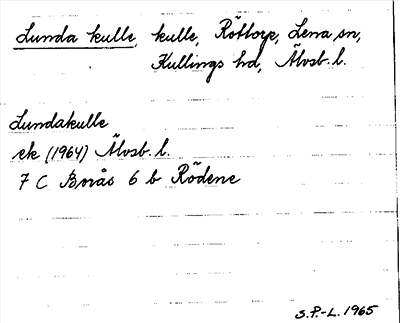 Lunda kulle, kulle, Röttorp, Lena sn,
Kullings hd, Älvsb. l.
Lundakulle
ek (1964) Älvsb. l.
7 C Borås 6 b Rödene
S.P.-L. 1965